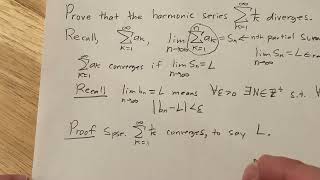 Prove that the harmonic series ∑_{k=1}^{∞} 1/k diverges.
Recall, ∑_{k=1}^{∞} a_k, lim_{n→∞} ∑_{k=1}^{n} a_k = S_n ← nth partial sum
∑_{k=1}^{∞} a_k converges if lim_{n→∞} S_n = L
lim_{n→∞} S_n = L ∈
Recall lim_{n→∞} b_n = L means ∀ε>0 ∃N∈ℤ⁺ s.t. ∀
|b_n - L| < ε
Proof Spse. ∑_{k=1}^{∞} 1/k converges, to say L.